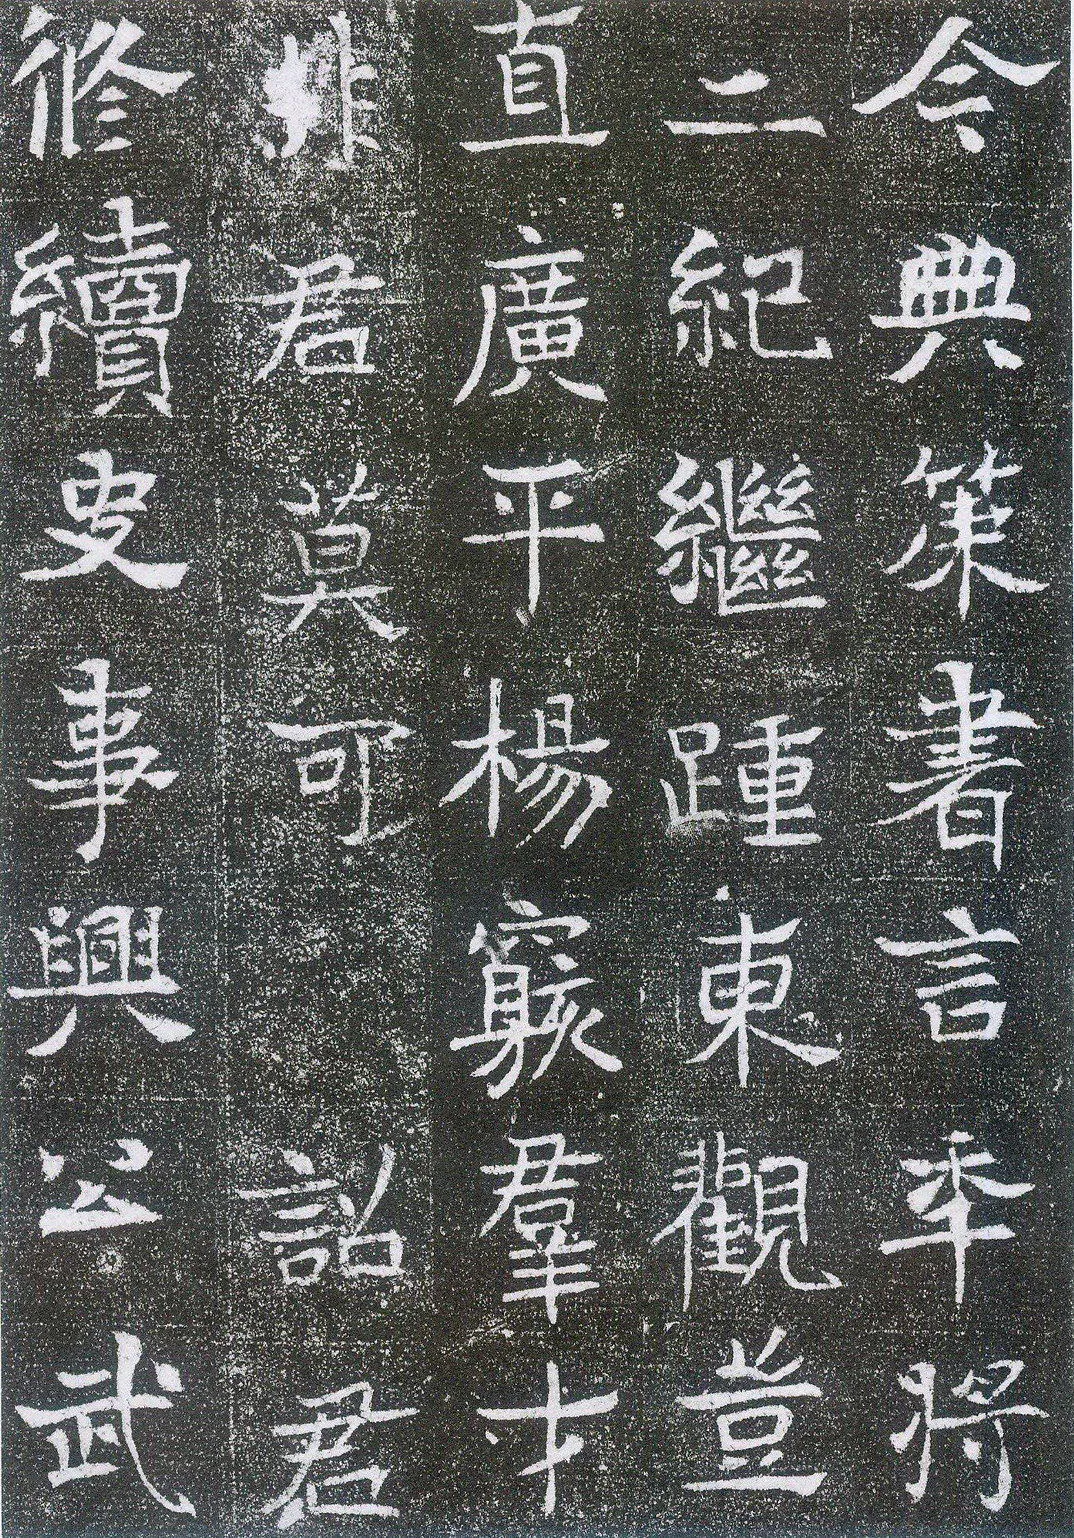 令典策書言年將
二紀繼踵東觀豈
直廣平楊羣才
非君莫可詔君
修續史事興公武